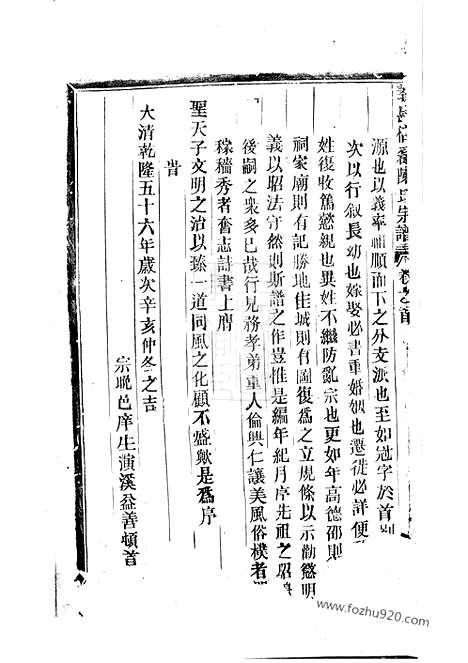 源也以義率而順而下之外支派也至如冠字於首別
次以行敘長幼也嫁娶必書重婚姻也遷徙必詳便
姓復收篤懿親也異姓不繼防亂宗也更如年高德邵則
祠家廟則有記勝地佳城則有圖復為之立規條以示勸懲明
義以昭法守然則斯譜之作豈惟是編年紀月序先祖之昭
後嗣之衆多已哉行見務孝弟重人倫興仁讓美風俗樸者
稼穡秀者奮志詩書上膺
聖天子文明之治以臻一道同風之化顧不盛歟是為序
旹
大清乾隆五十六年歲次辛亥仲冬之吉
宗晚邑庠生演溪益善頓首
陳氏宗譜 卷之首
www.fozhu920.com